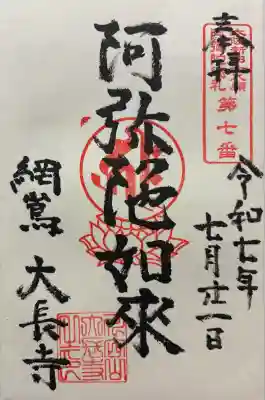 奉拝
第七番
令和七年
七月廿一日
阿弥陀如來
網嶌 大長寺